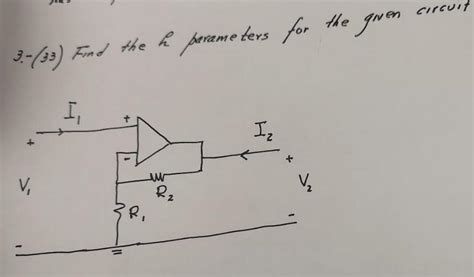 3.-(33) Find the h parameters for the given circuit
I1
+
I2
+
-
+
+
V1
R2
V2
R1
-
-